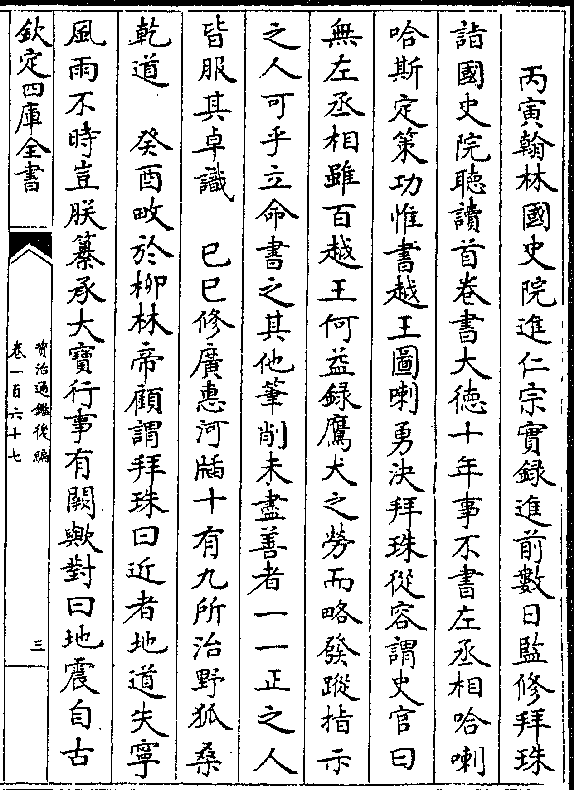 丙寅翰林國史院進仁宗實録進前數日監修拜珠
詣國史院聽讀首卷書大徳十年事不書左丞相哈喇
哈斯定䇿功惟書越王圖喇勇決拜珠從容謂史官曰
無左丞相雖百越王何益録鷹犬之勞而略發蹤指示
之人可乎立命書之其他筆削未盡善者一一正之人
皆服其卓識　已巳修廣惠河牐十有九所治野狐桑
乾道　癸酉畋於柳林帝顧謂拜珠曰近者地道失寧
風雨不時豈朕纂承大寶行事有闕歟對曰地震自古
欽定四庫全書
資治通鑑後編
卷一百六十七
三